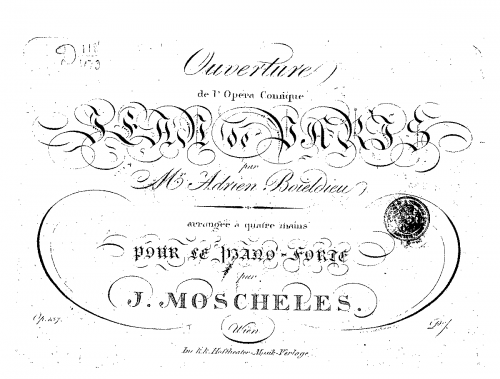 Ouverture
de l'Opera Comique
JEAN de PARIS
par
Mr. Adrien Boieldieu
arrangée à quatre mains
POUR LE PIANO-FORTE
par
J. MOSCHELES.
Wien
Im k.k. Hoftheater-Musik-Verlage.